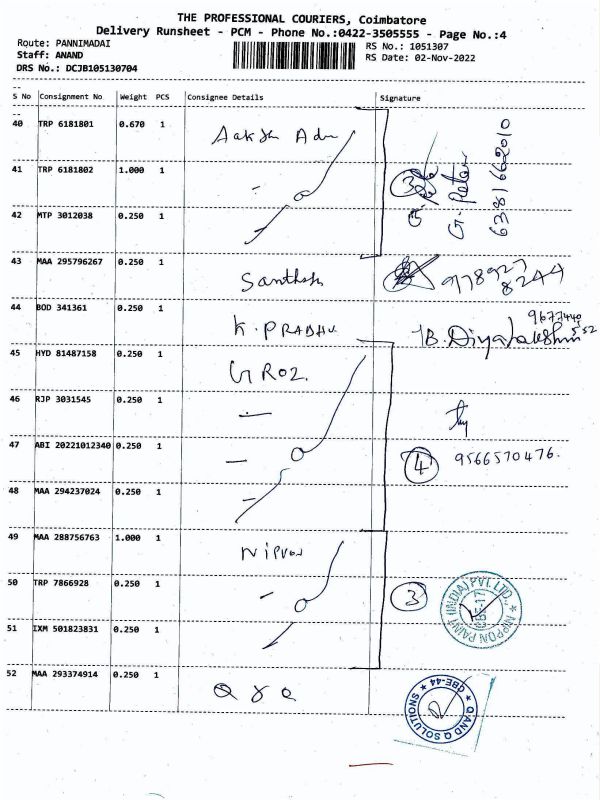 THE PROFESSIONAL COURIERS, Coimbatore
Delivery Runsheet - PCM - Phone No.:0422-3505555 - Page No.:4
Route: PANNIMADAI
RS No.: 1051307
Staff: ANAND
RS Date: 02-Nov-2022
DRS No.: DCJB105130704
S No Consignment No Weight PCS Consignee Details Signature
40 TRP 6181801 0.670 1
41 TRP 6181802 1.000 1 3 G. Peter 6381662010
42 MTP 3012038 0.250 1
43 MAA 295796267 0.250 1 Santhosh 978927 8244
44 BOD 341361 0.250 1 K. PRABHU B. Diyalakshmi
45 HYD 81487158 0.250 1 GROZ.
46 RJP 3031545 0.250 1
47 ABI 20221012340 0.250 1 4 9566570476.
48 MAA 294237024 0.250 1
49 MAA 288756763 1.000 1 Nippon
50 TRP 7866928 0.250 1 3 NIPPON PAINT (INDIA) PVT. LTD., CBE-17
51 IXM 501823831 0.250 1
52 MAA 293374914 0.250 1 Q & Q Q AND Q SOLUTIONS CBE-44